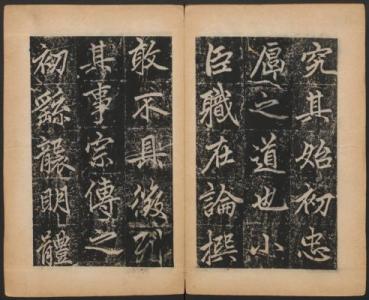 究其始初忠
厚之道也小
臣職在論撰
敢不具後列
其事宗傳之
初繇襲明體